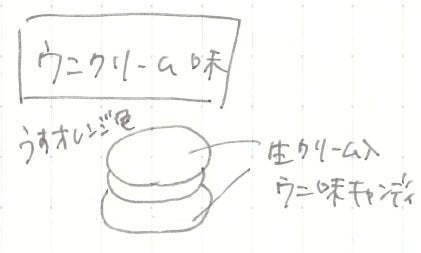 ウニクリーム味
うすオレンジ色
生クリーム入
ウニ味キャンディ